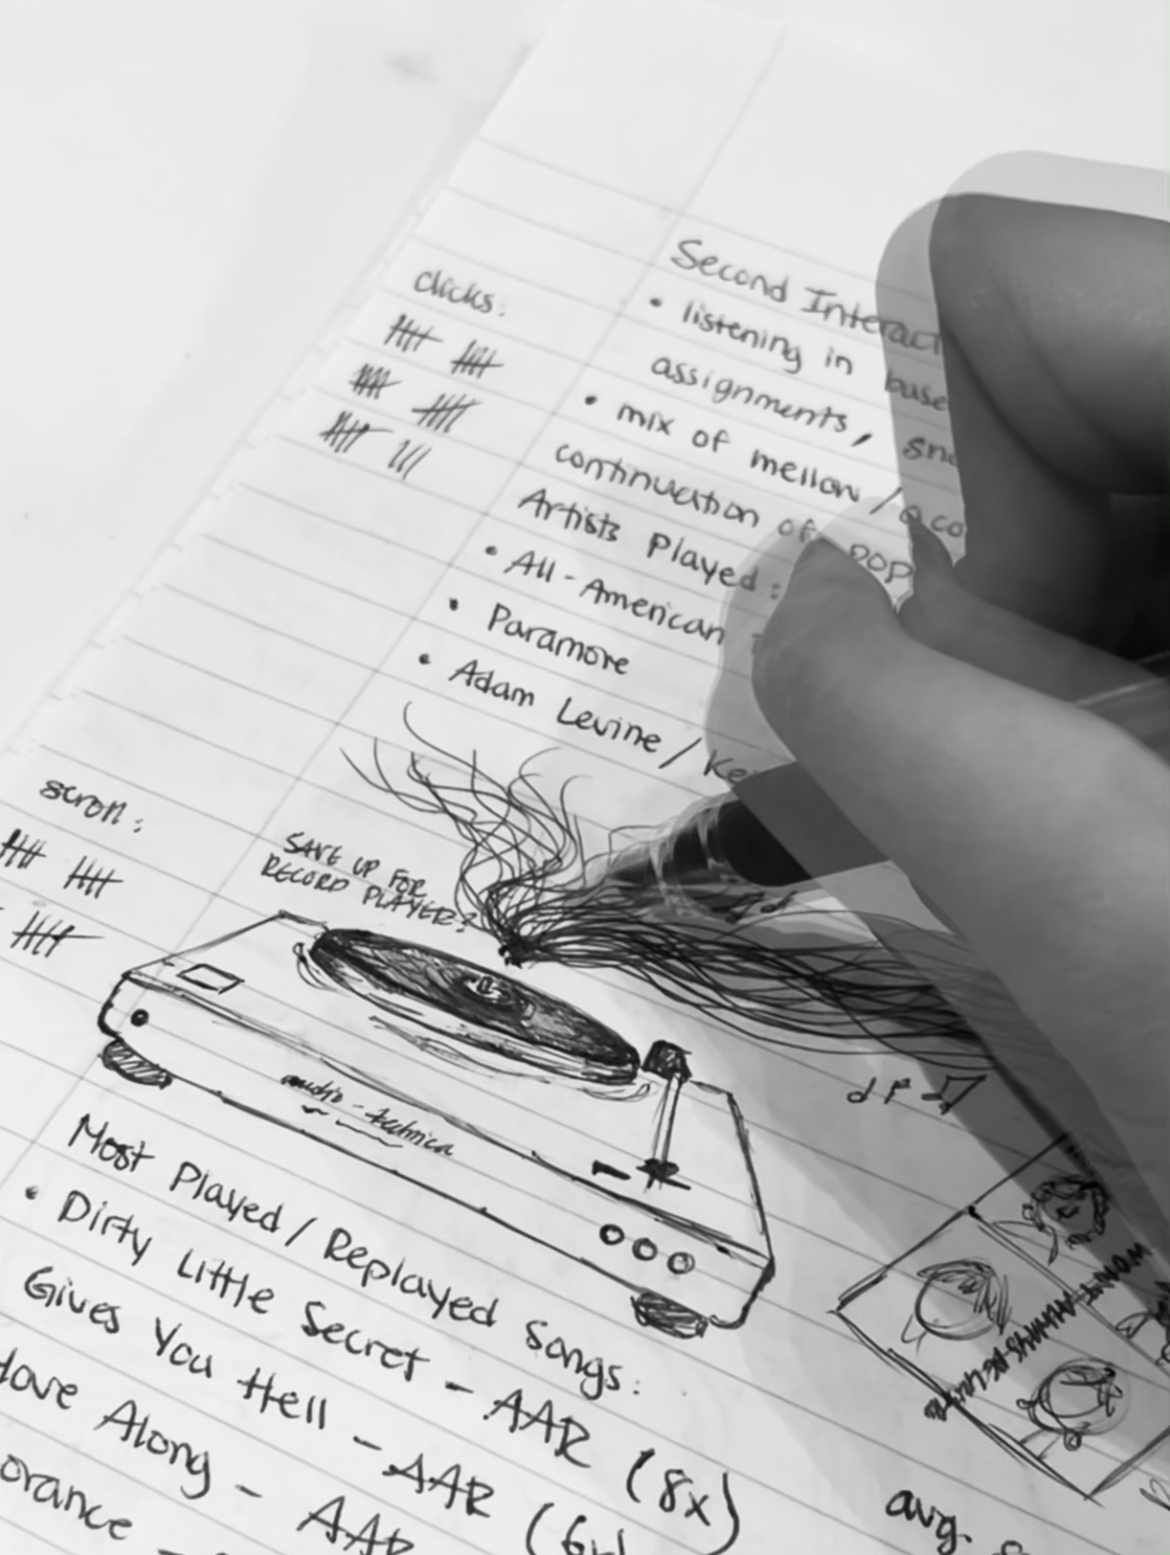 clicks:
Second Interact
• listening in base
assignments,
• mix of mellow /
continuation of pop
Artists Played:
• All-American
• Paramore
• Adam Levine /
scroll:
SAVE UP FOR
RECORD PLAYER?
audio-technica
Most Played / Replayed Songs:
• Dirty Little Secret - AAR (8x)
Gives You Hell - AAR
Along - AAR
avg.